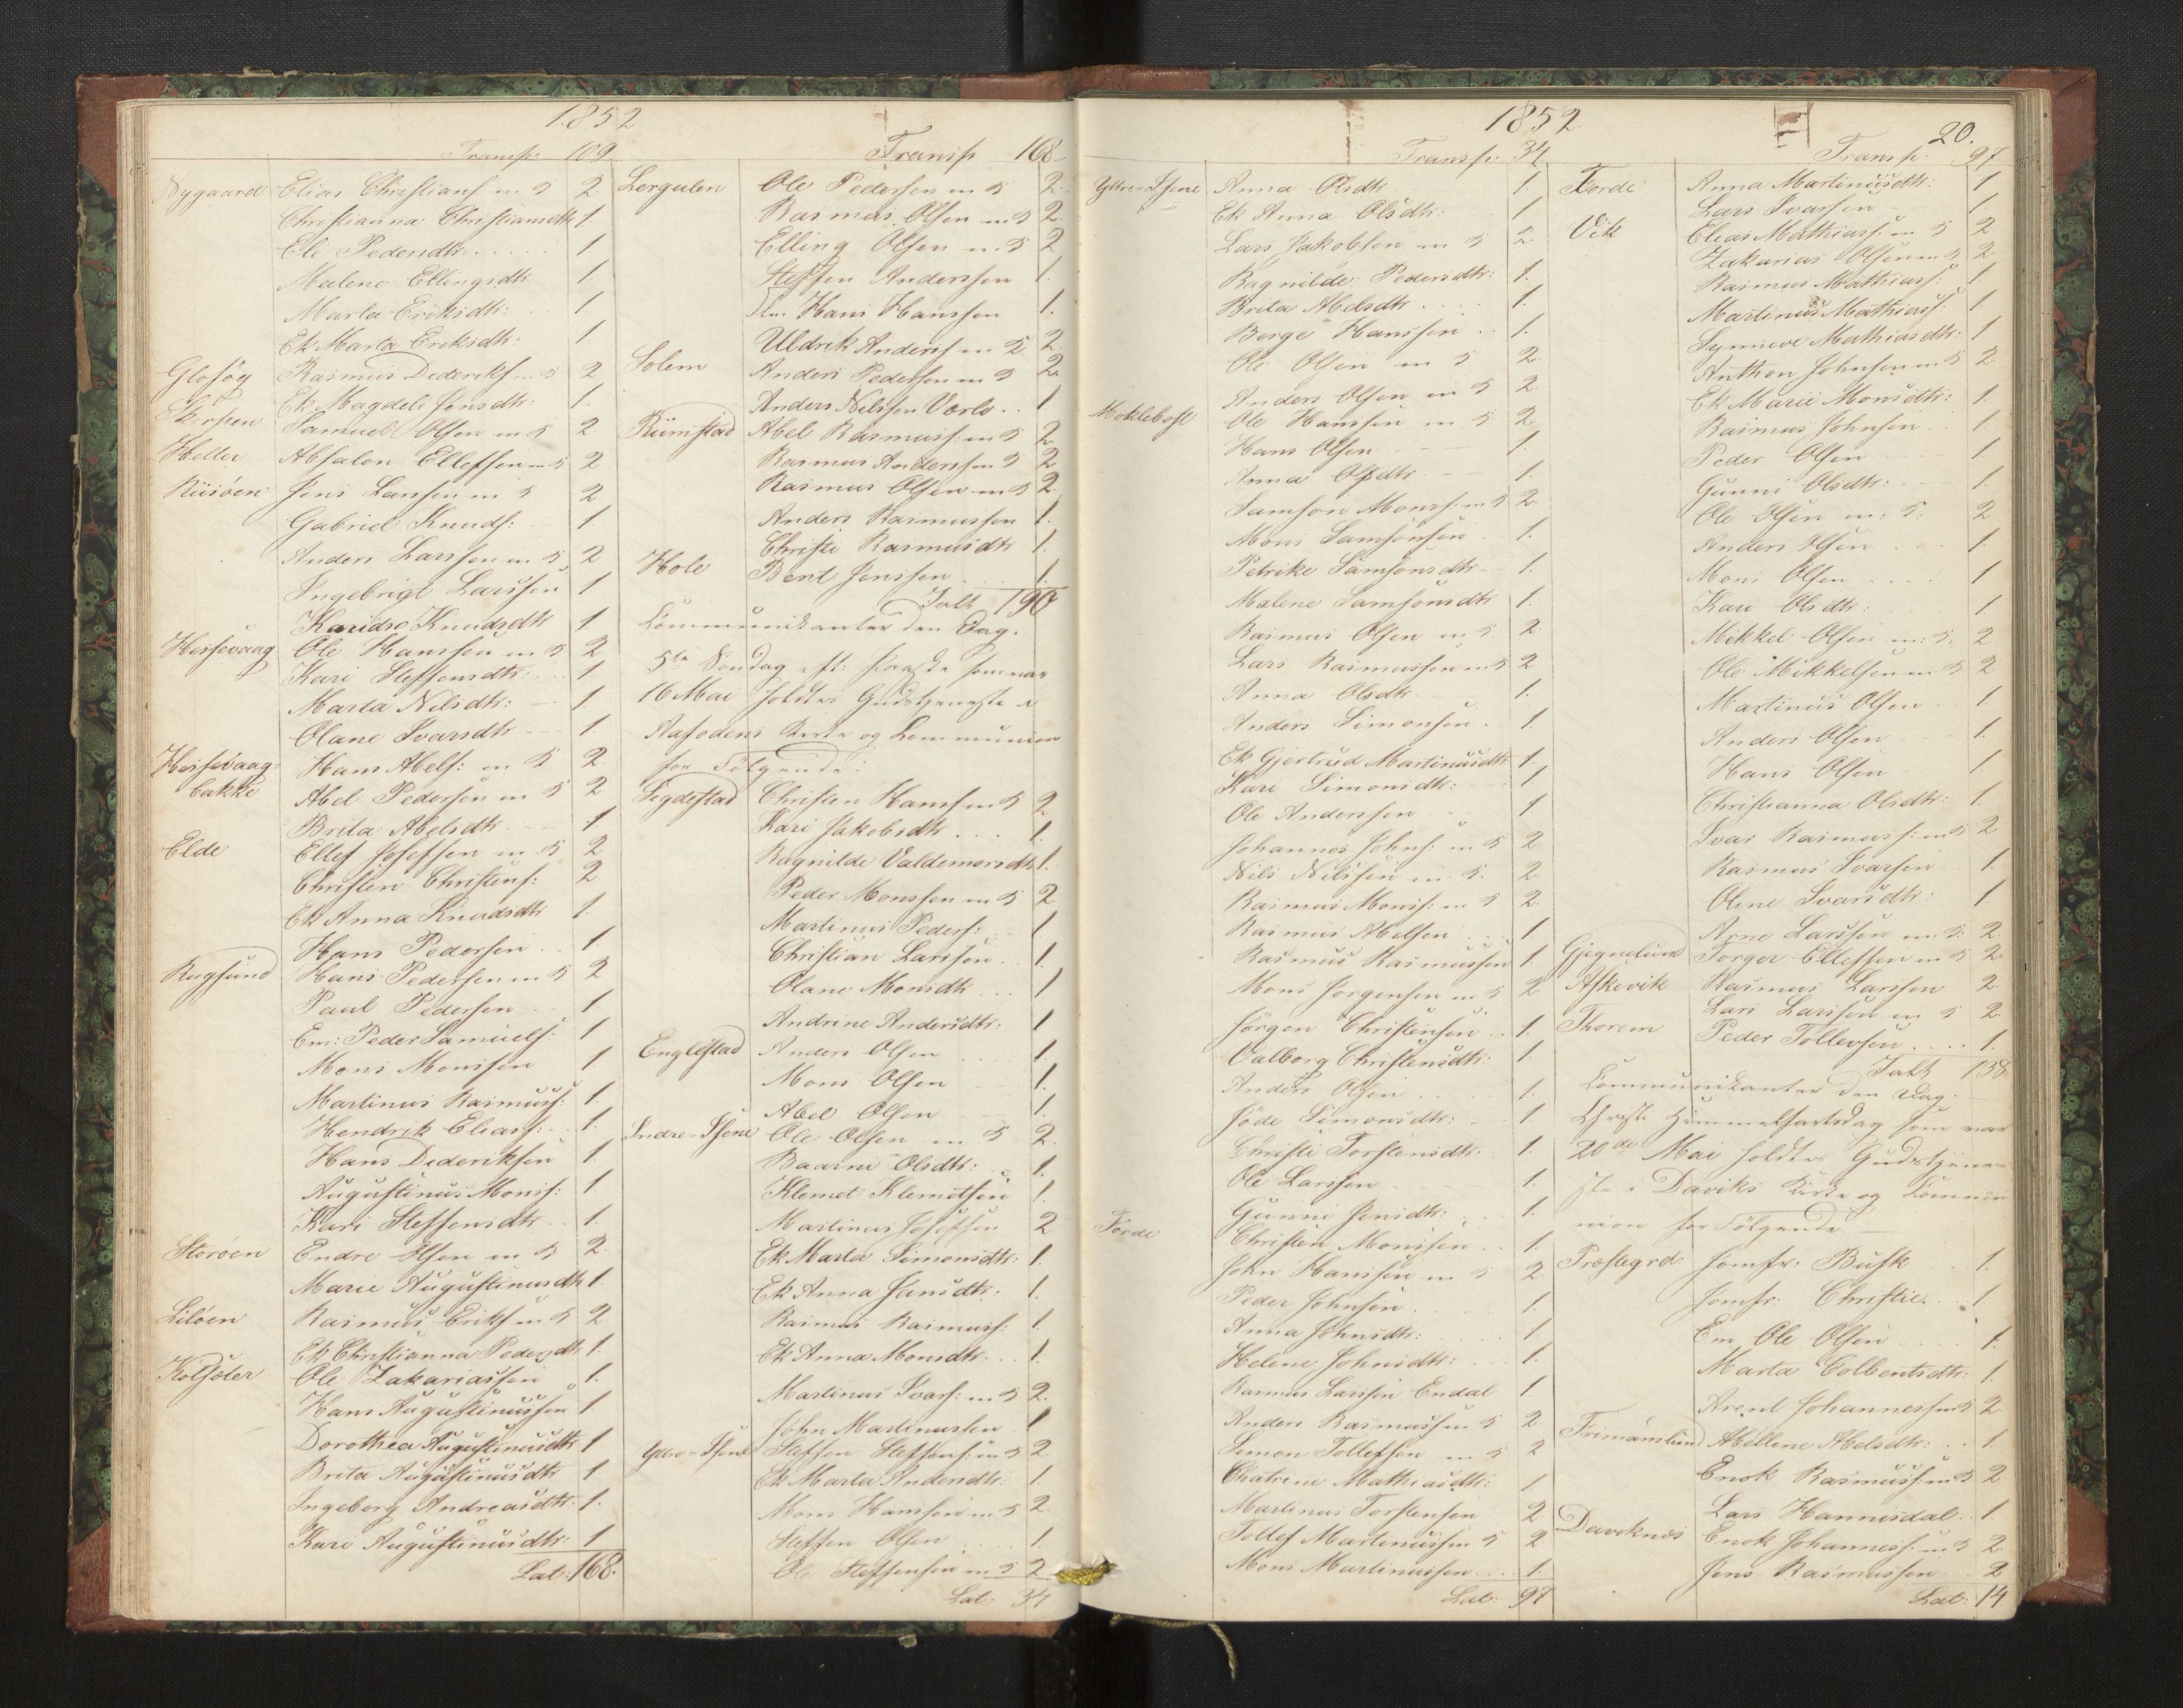 1852
Transp. 109
Nygaard Elias Christians m K 2
Christianna Christiansdtr 1.
Eli Pedersdtr 1
Malene Ellingsdtr 1.
Marta Eriksdtr: 1
Ek Marta Eriksdtr: 1
Rasmus Dederiksf m K 2
Ek Magdeli Jensdtr: 1.
Samuel Olsen m K 2
Heller Absalon Ellefsen m K 2
Riisöen Jens Larssen m K 2
Gabriel Knuds: 1.
Anders Larssen m K 2
Ingebrigt Larssen 1
Knudsdtr 1
Hessevaag Ole Hanssen m K 2
Kari Steffensdtr 1
Marta Nilsdtr: 1.
Olane Ivarsdtr 1
Hessevaag= Hans Abels: m K 2.
bakke Abel Pedersen m K 2
Brita Abelsdtr 1.
Elde Ellef Josefsen m K 2
Christen Christens: 2
Ek Anna Knudsdtr 1.
Hans Pedersen 1
Rugsund Hans Pedersen m K 2
Paul Pedersen 1.
Em: Peder Samuels: 1
Mons Monssen 1
Martinus Rasmuss: 1.
Hendrik Elias: 1.
Hans Dideriksen 1.
Augustinus Monss: 1
Kari Steffensdtr 1.
Storöen Endre Olsen m K 2.
Marie Augustinusdtr 1.
Liløen Rasmus Eriks m K 2
Ek Christianna Pedersdtr 1.
Kolsæter Ole Zakariassen 1.
Hans Augustinussen 1.
Dorothea Augustinusdtr 1
Brita Augustinusdtr 1
Ingeborg Andreasdtr 1.
Kari Augustinusdtr: 1
Lat: 168.
Transp 168
Lergulen Ole Pedersen m K 2.
Rasmus Olsen m K 2.
Elling Olsen m K 2
Steffen Anderssen 1.
Hans Hanssen 1.
Uldrik Anders m K 2
Solem Anders Pedersen m K 2.
Anders Nilssen 1
Rimstad Abel Rasmuss: m K 2
Rasmus Anderssen K 2
Rasmus Olsen m K 2.
Anders Rasmussen 1.
Christi Rasmusdtr 1.
Hole Bent Jenssen 1.
Ialt 190
Communikanter den Dag.
5te Søndag eft: Paaske som var
16 Mai holdtes Gudstjeneste i
Aafodens Kirke og Communion
for Følgende:
Sigdestad Christen Hanss m K 2
Kari Jakobsdtr 1.
Ragnilde Valdemorsdtr 1.
Peder Monssen m K 2
Martinus Peders: 1
Christian Larssen 1.
Olane Monsdtr 1
Andrine Andersdtr: 1
Englestad Anders Olsen 1.
Mons Olsen 1.
Abel Olsen 1.
Indre= Ole Olsen m K 2.
Olsdtr: 1.
Klemet Klemetsen 1.
Martinus Josefsen 2
Ek Marta Simonsdtr: 1.
Ek Anna Jansdtr: 1.
Rasmus Rasmuss: 1
Ek Anna Monsdtr: 1.
Martinus Ivars: m K 2.
John Martinussen 1
Ytre= Steffen Steffens: m K 2
Ek Marta Andersdtr: 1
Mons Hanssen m K 2
Steffen Olsen 1.
Ole Steffensen m K 2
Lat: 34
1852
Transp: 34
Anna Olsdtr 1.
Ek Anna Olsdtr: 1
Lars Jakobsen m K 2.
Ragnilde Pedersdtr: 1.
Brita Abelsdtr 1.
Børge Hanssen 1.
Ole Olsen m K 2.
Anders Olsen m K 2.
Moklebost Ole Hanssen m K 2.
Hans Olsen 1.
Anna Olsdtr 1.
Samson Monss: m K 2.
Mons Samsonsen 1.
Petrike Samsonsdtr 1.
Malene Samsonsdtr 1.
Rasmus Olsen m K 2
Lars Rasmussen m K 2
Anna Olsdtr 1.
Anders Simonsen 1.
Ek Gjertrud Martinusdtr 1.
Kari Simonsdtr: 1
Ole Anderssen 1
Johannes Johns: m K 2
Nils Nilssen m K 2.
Rasmus Monss: m K 2.
Rasmus Abelsen 1.
Rasmus Rasmussen 1
Mons Jorgensen m K 2
Jørgen Christensen 1.
Valborg Christensdtr: 1.
Anders Olsen 1.
Jöde Simonsdtr: 1.
Christi Torstensdtr: 1.
Ole Larssen 1.
Gunni Jensdtr: 1.
Förde Christen Monssen 1.
John Hanssen m K 2
Peder Johnsen 1.
Anna Johnsdtr: 1
Helene Johnsdtr: 1.
Rasmus Larssen Endal 1.
Anders Rasmussen K 2
Simon Tollefsen m K 2
Chatrine Mathiasdtr: 1
Martinus Torstensen 2
Tollef Martinussen K 2
Mons Martinussen 1.
Lat: 97
20.
Transp. 97
Förde Anna Martinusdtr: 1
Lars Ivarsen 1.
Vik Elias Mathiass: m K 2
Zakarias Olsen m K 2
Rasmus Mathiass: 1.
Martinus Mathiass: 1.
Synneve Mathiasdtr: 1
Anthon Johnsen m K 2
Ek Marie Monsdtr: 1.
Rasmus Johnsen 1.
Peder Olsen 1
Gunni Olsdtr: 1.
Ole Olsen m: K. 2
Anders Olsen 1.
Mons Olsen 1
Kari Olsdtr: 1
Mikkel Olsen m K. 2
Ole Mikkelsen m K 2
Martinus Olsen 1.
Anders Olsen 1.
Hans Olsen 1.
Christianna Olsdtr: 1.
Ivar Rasmuss: m K 2
Rasmus Ivarsen 1.
Oline Ivarsdtr: 1
Arne Larssen m K. 2.
Gjegnelund Torger Ellefsen m K 2
Askevik Rasmus Larssen 2.
Lars Larssen m K 2.
Thorem Peder Tollevsen 1.
Ialt 138
Communikanter den Dag.
Christi Himmelfartsdag som var
20de Mai holdtes Gudstjene-
ste i Daviks Kirke og Commu
nion for Følgende
Præstegrd Jomfr: Busk 1.
Jomfr: Christie 1
Em Ole Olsen 1.
Marta Colbentsdtr: 1.
Arent Johannessen K 2
Frimanslund Abellene Abelsdtr: 1.
Enok Rasmuss: m K 2.
Lars Hannisdal 1.
Daviknæs Enok Johanness: m K 2.
Jens Rasmussen 2
Lat: 14